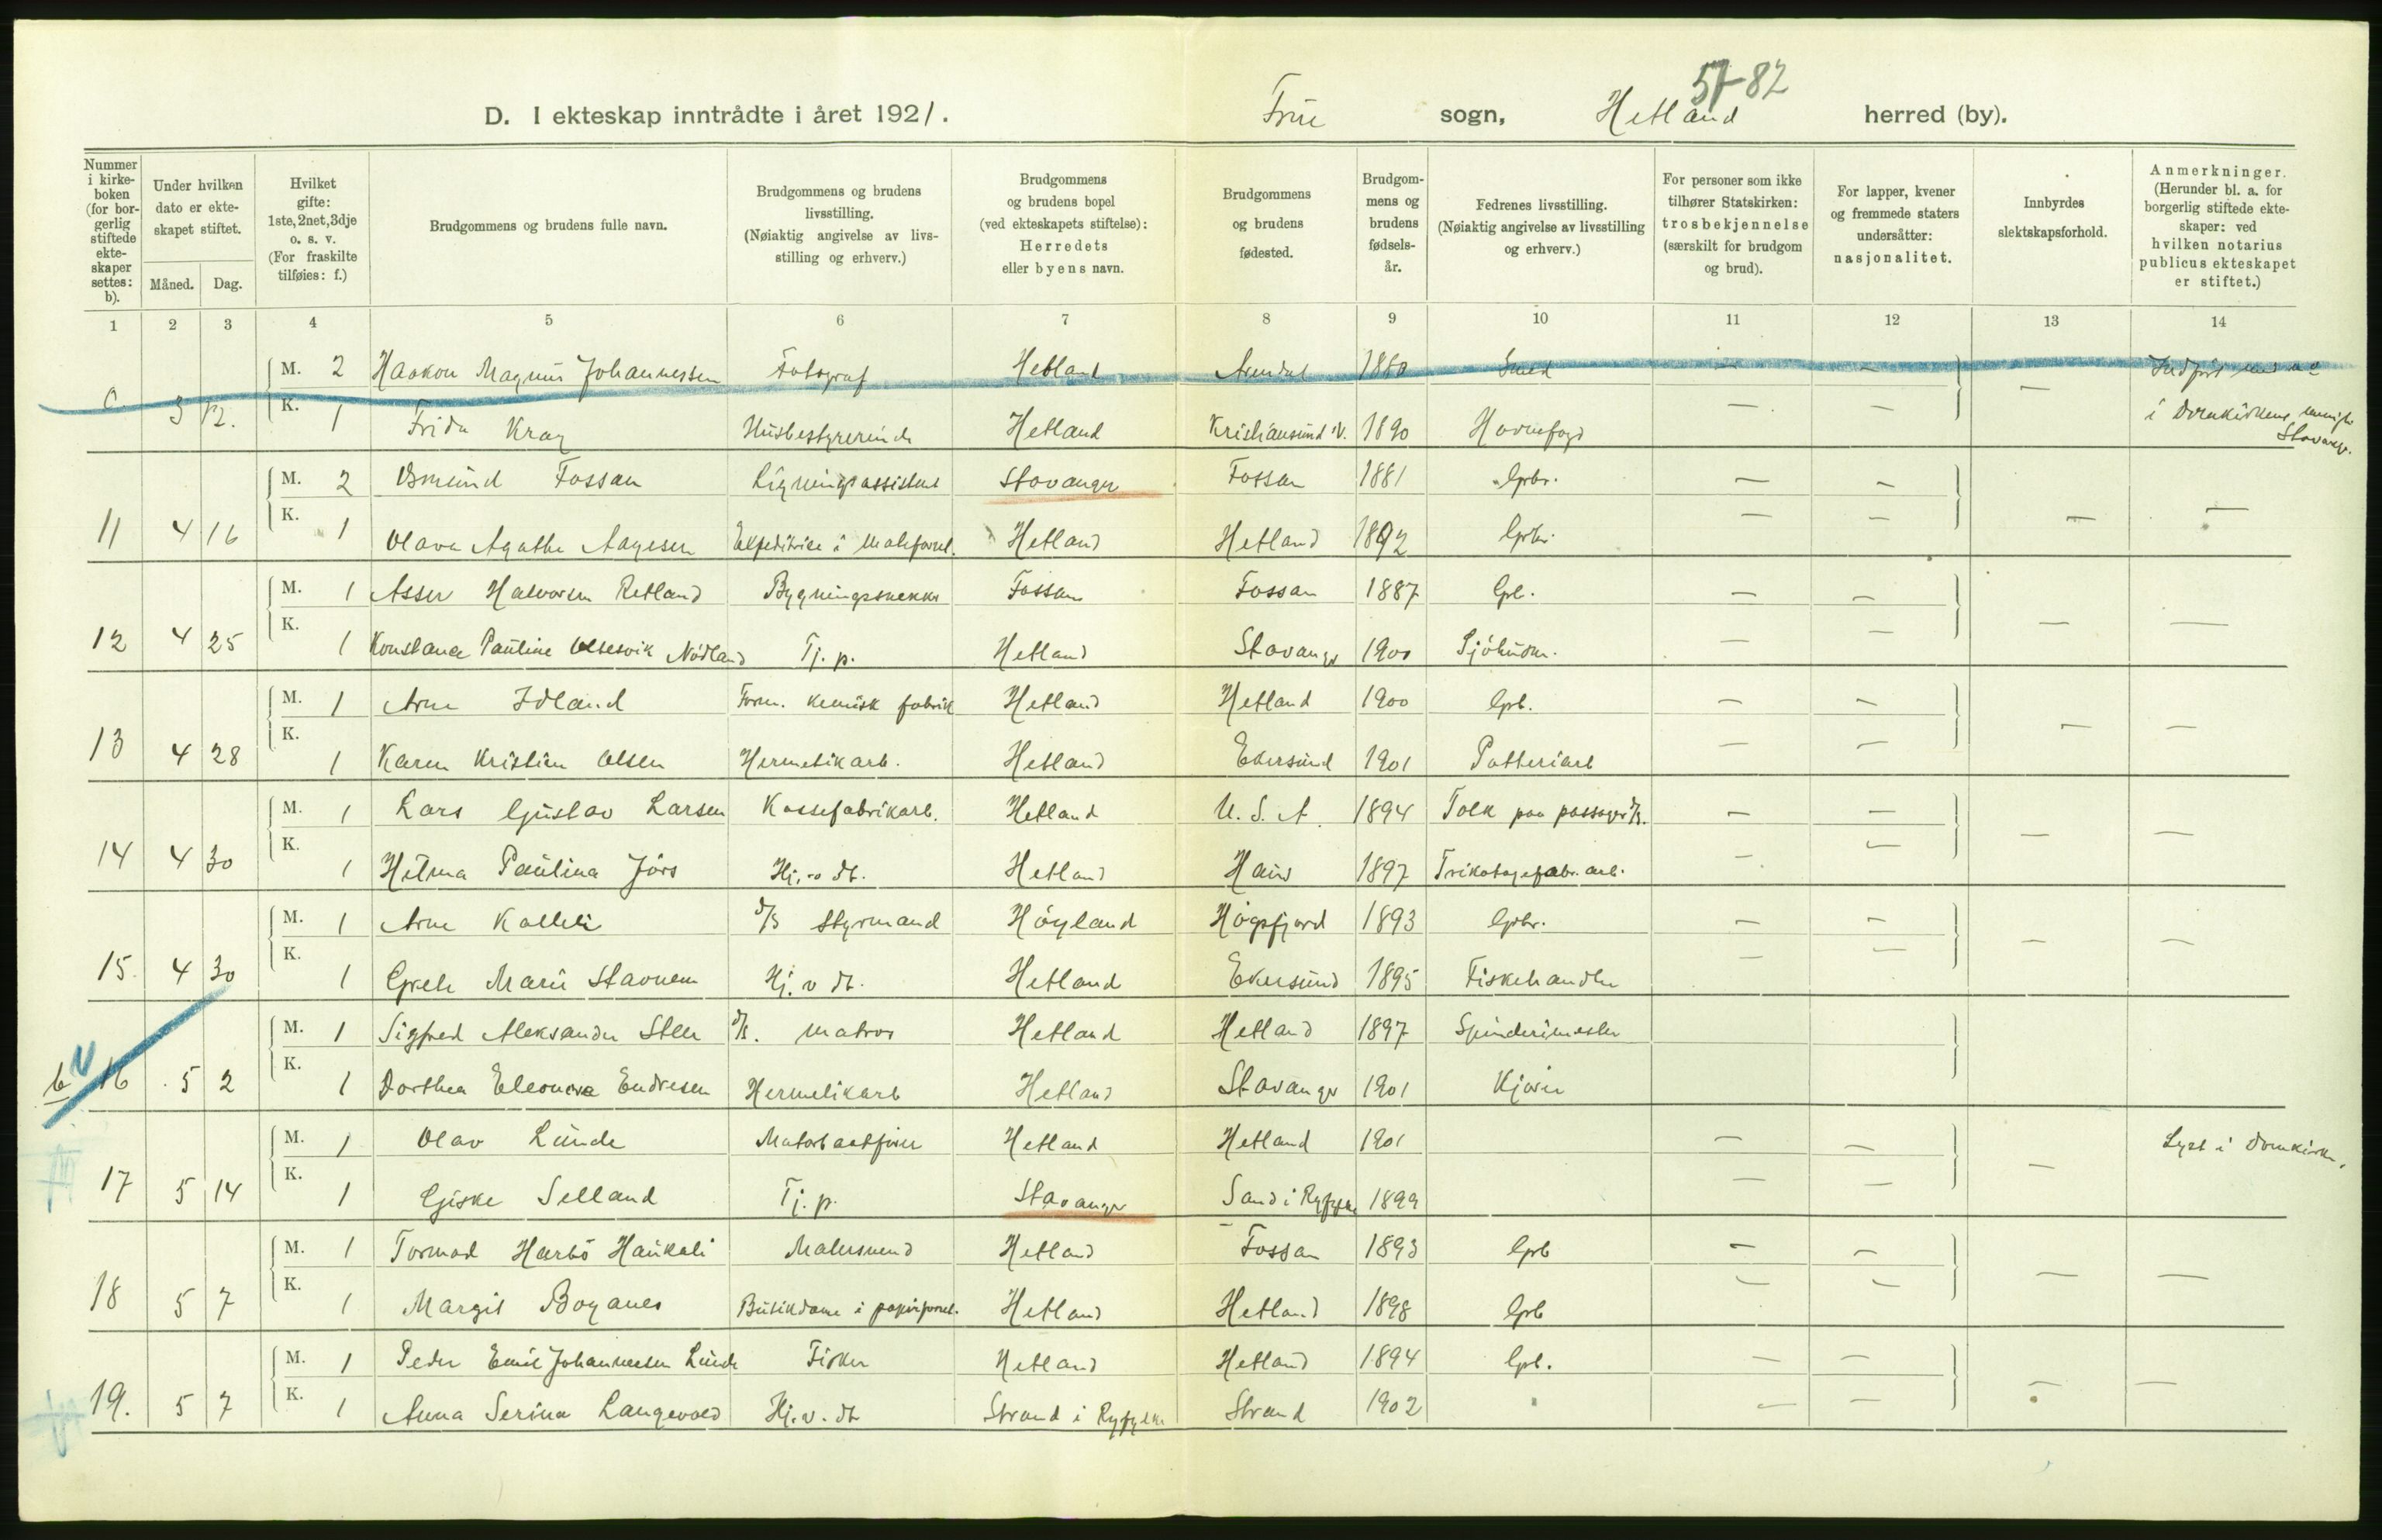 57-82
D. I ekteskap inntrådte i året 1921. Frue sogn, Hetland herred (by).
Nummer i kirke-boken (for bor-gerlig stiftede ekte-skaper settes: b).
Under hvilken dato er ekte-skapet stiftet.
Måned. Dag.
Hvilket gifte: 1ste, 2net, 3dje o. s. v. (For fraskilte tilføies: f.)
Brudgommens og brudens fulle navn.
Brudgommens og brudens livsstilling. (Nøiaktig angivelse av livs-stilling og erhverv.)
Brudgommens og brudens bopel (ved ekteskapets stiftelse): Herredets eller byens navn.
Brudgommens og brudens fødested.
Brudgom-mens og brudens fødsels-år.
Fedrenes livsstilling. (Nøiaktig angivelse av livsstilling og erhverv.)
For personer som ikke tilhører Statskirken: trosbekjennelse (særskilt for brudgom og brud).
For lapper, kvener og fremmede staters undersåtter: nasjonalitet.
Innbyrdes slektskapsforhold.
Anmerkninger. (Herunder bl. a. for borgerlig stiftede ekte-skaper: ved hvilken notarius publicus ekteskapet er stiftet.)
1 2 3 4 5 6 7 8 9 10 11 12 13 14
M. 2 Haakon Magnus Johannessen Fotograf Hetland Arendal 1880 Smed — —
3 12. K. 1 Frida Krag Husbestyrerinde Hetland Kristiansund N. 1890 Havnefogd — — — i Domkirkens Stavanger.
M. 2 Osmund Fossan Ligningsassistent Stavanger Fossan 1881 Grbr. — —
11 4 16 K. 1 Olava Agathe Aagesen Expeditrice i Hetland Hetland 1892 Grbr. — — — —
M. 1 Asser Halvorsen Retland Bygningssnekker Fossan Fossan 1887 Grb. — —
12 4 25 K. 1 Konstance Pauline Olsesvik Nödland Tj. p. Hetland Stavanger 1900 Sjöhusm. — — — —
M. 1 Arne Idland Form. kemisk fabrik Hetland Hetland 1900 Grb. — —
13 4 28 K. 1 Karen Kristine Olsen Hermetikarb. Hetland Ekersund 1901 Potteriarb — — — —
M. 1 Lars Gustav Larsen Kassefabrikarb. Hetland U. S. A. 1894 Tolk paa passager d/s. — —
14 4 30 K. 1 Hilma Paulina Jörs Hj. v dt. Hetland 1897 Trikotagefabr. arb. — — — —
M. 1 Arne Kalleli d/s styrmand Höyland Högsfjord 1893 Grbr. — —
15. 4 30 K. 1 Grete Marie Stavnem Hj. v dt. Hetland Ekersund 1895 Fiskehandler — — — —
M. 1 Sigfred Aleksander Steen d/s. matros Hetland Hetland 1897 Spinderimester
16 5 2 K. 1 Dorthea Eleonora Endresen Hermetikarb Hetland Stavanger 1901 Kjører
M. 1 Olav Lunde Motorbaatfører Hetland Hetland 1901 — — Lyst i Domkirken.
17 5 14 K. 1 Giske Selland Tj. p. Stavanger Sand i Ryfylke 1899 — — —
M. 1 Tormod Harbö Haukali Malersvend Hetland Fossan 1893 Grb — —
18 5 7 K. 1 Margit Boganes Butikdame i papirforret. Hetland Hetland 1898 Grb — — — —
M. 1 Peder Emil Johannesen Lunde Fisker Hetland Hetland 1894 Grb. — —
19. 5 7 K. 1 Anna Serina Langevold Hj. v. dt Strand i Ryfylke Strand 1902 — — — —